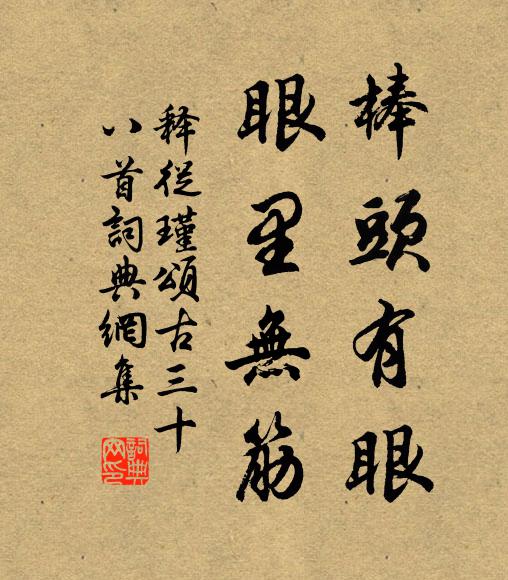 棒頭有眼
眼里無筋
释從瑾頌古三十
八首詞典網集
詞典
网印